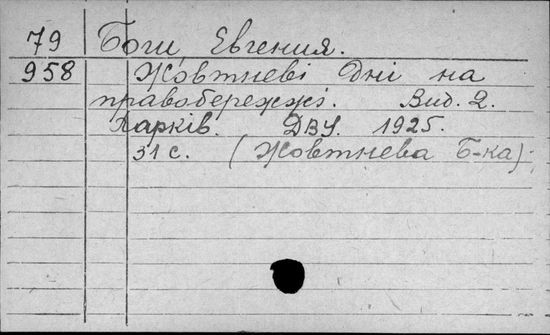 79 Боги, Евгения.
958 Жовтневі Дні на
правобережжі. Вид. 2.
Харків. ДВУ. 1925.
31 с. (Жовтнева Б-ка)